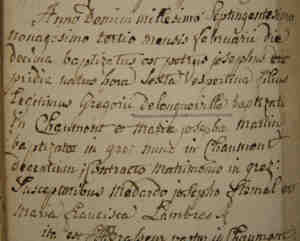 Anno Domini millesimo Septingentesimo
nonagesimo tertio mensis februarii die
decima baptizatus est petrus josephus
pridie natus hora sexta vespertina filius
legitimus Gregorii Delonguoiville baptizati
in Chaumont et Maria josepha Martin
baptizata in nunc in Chaumont
degentium; Contracto Matrimonio in
Susceptoribus Medardo josepho et
Maria francisca Lambres
ita est in Chaumont